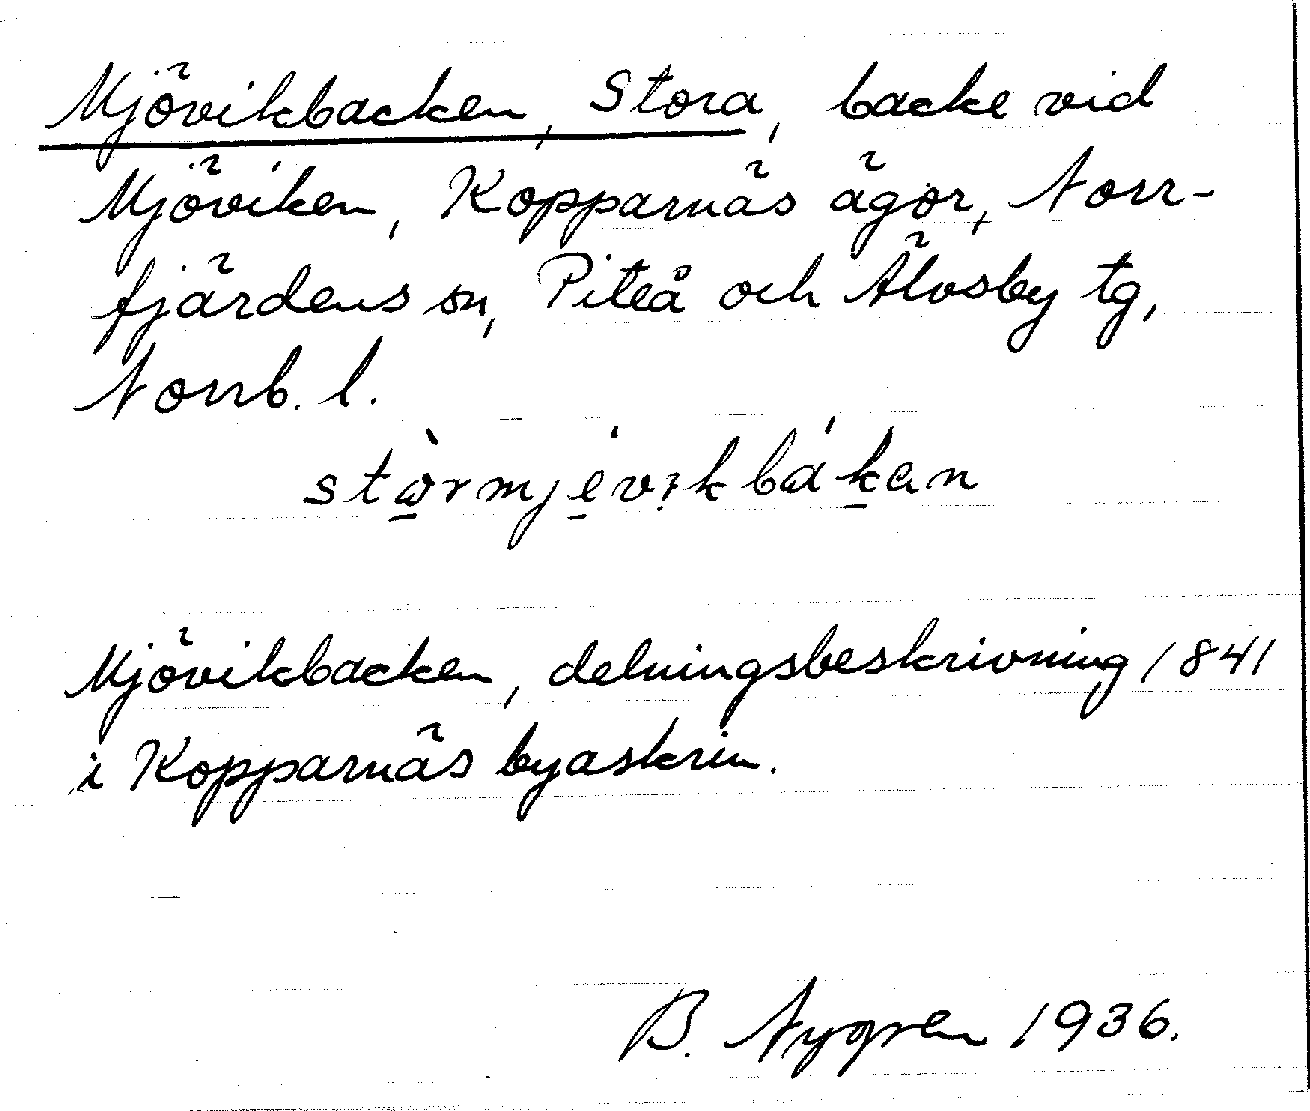 Mjövikbacken, Stora, backe vid
Mjöviken, Kopparnäs ägor, Norr-
fjärdens sn, Piteå och Älvsby tg,
Norrb. l.
stò̱rmjé̱vikbáḵan
Mjövikbacken, delningsbeskrivning 1841
i Kopparnäs byaskrin.
B. Nygren 1936.